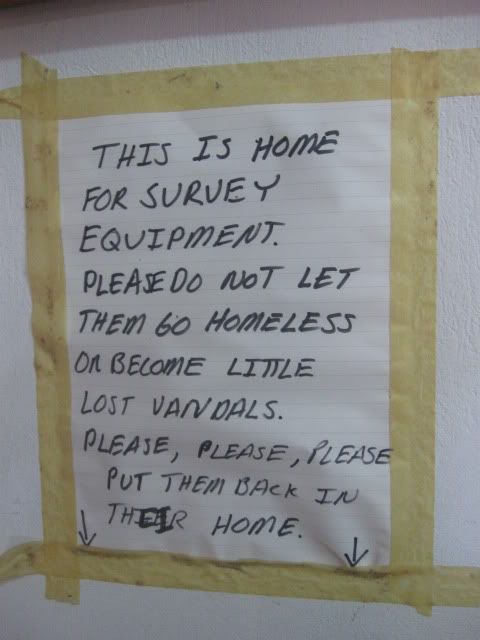 THIS IS HOME
FOR SURVEY
EQUIPMENT.
PLEASE DO NOT LET
THEM GO HOMELESS
OR BECOME LITTLE
LOST VANDALS.
PLEASE, PLEASE, PLEASE
PUT THEM BACK IN
THEIR HOME.